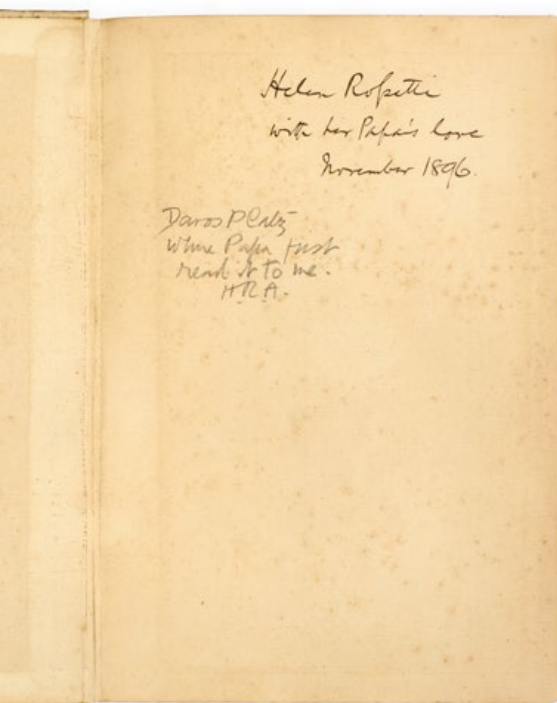 Helen Rossetti
with her Papa's love
November 1896.
Davos Platz
where Papa first
read it to me.
H.R.A.